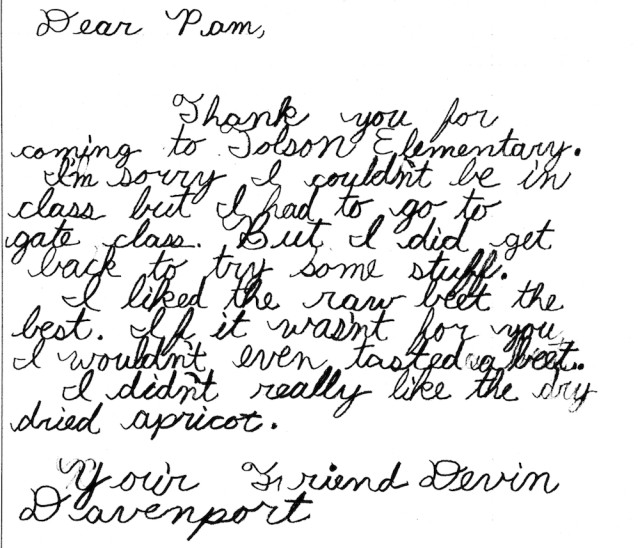 Dear Pam,
Thank you for
coming to Tolson Elementary.
I'm sorry I couldn't be in
class but I had to go to
gate class. But I did get
back to try some stuff.
I liked the raw beet the
best. If it wasn't for you
I wouldn't even tasted a beet.
I didn't really like the dry
dried apricot.
Your Friend Devin
Davenport